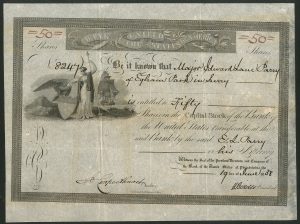 50 50
Shares Shares
BANK UNITED
OF THE STATES
8247 Be it known that Major Edward Lane Parry
of Egham Park in Surry
is entitled to Fifty
Shares in the Capital Stock of the Bank of
the United States transferable at the
said Bank by the said E. L. Parry
or his Attorney
Witness the Seal of the President Directors and Company of
the Bank of the United States at Philadelphia
19th June